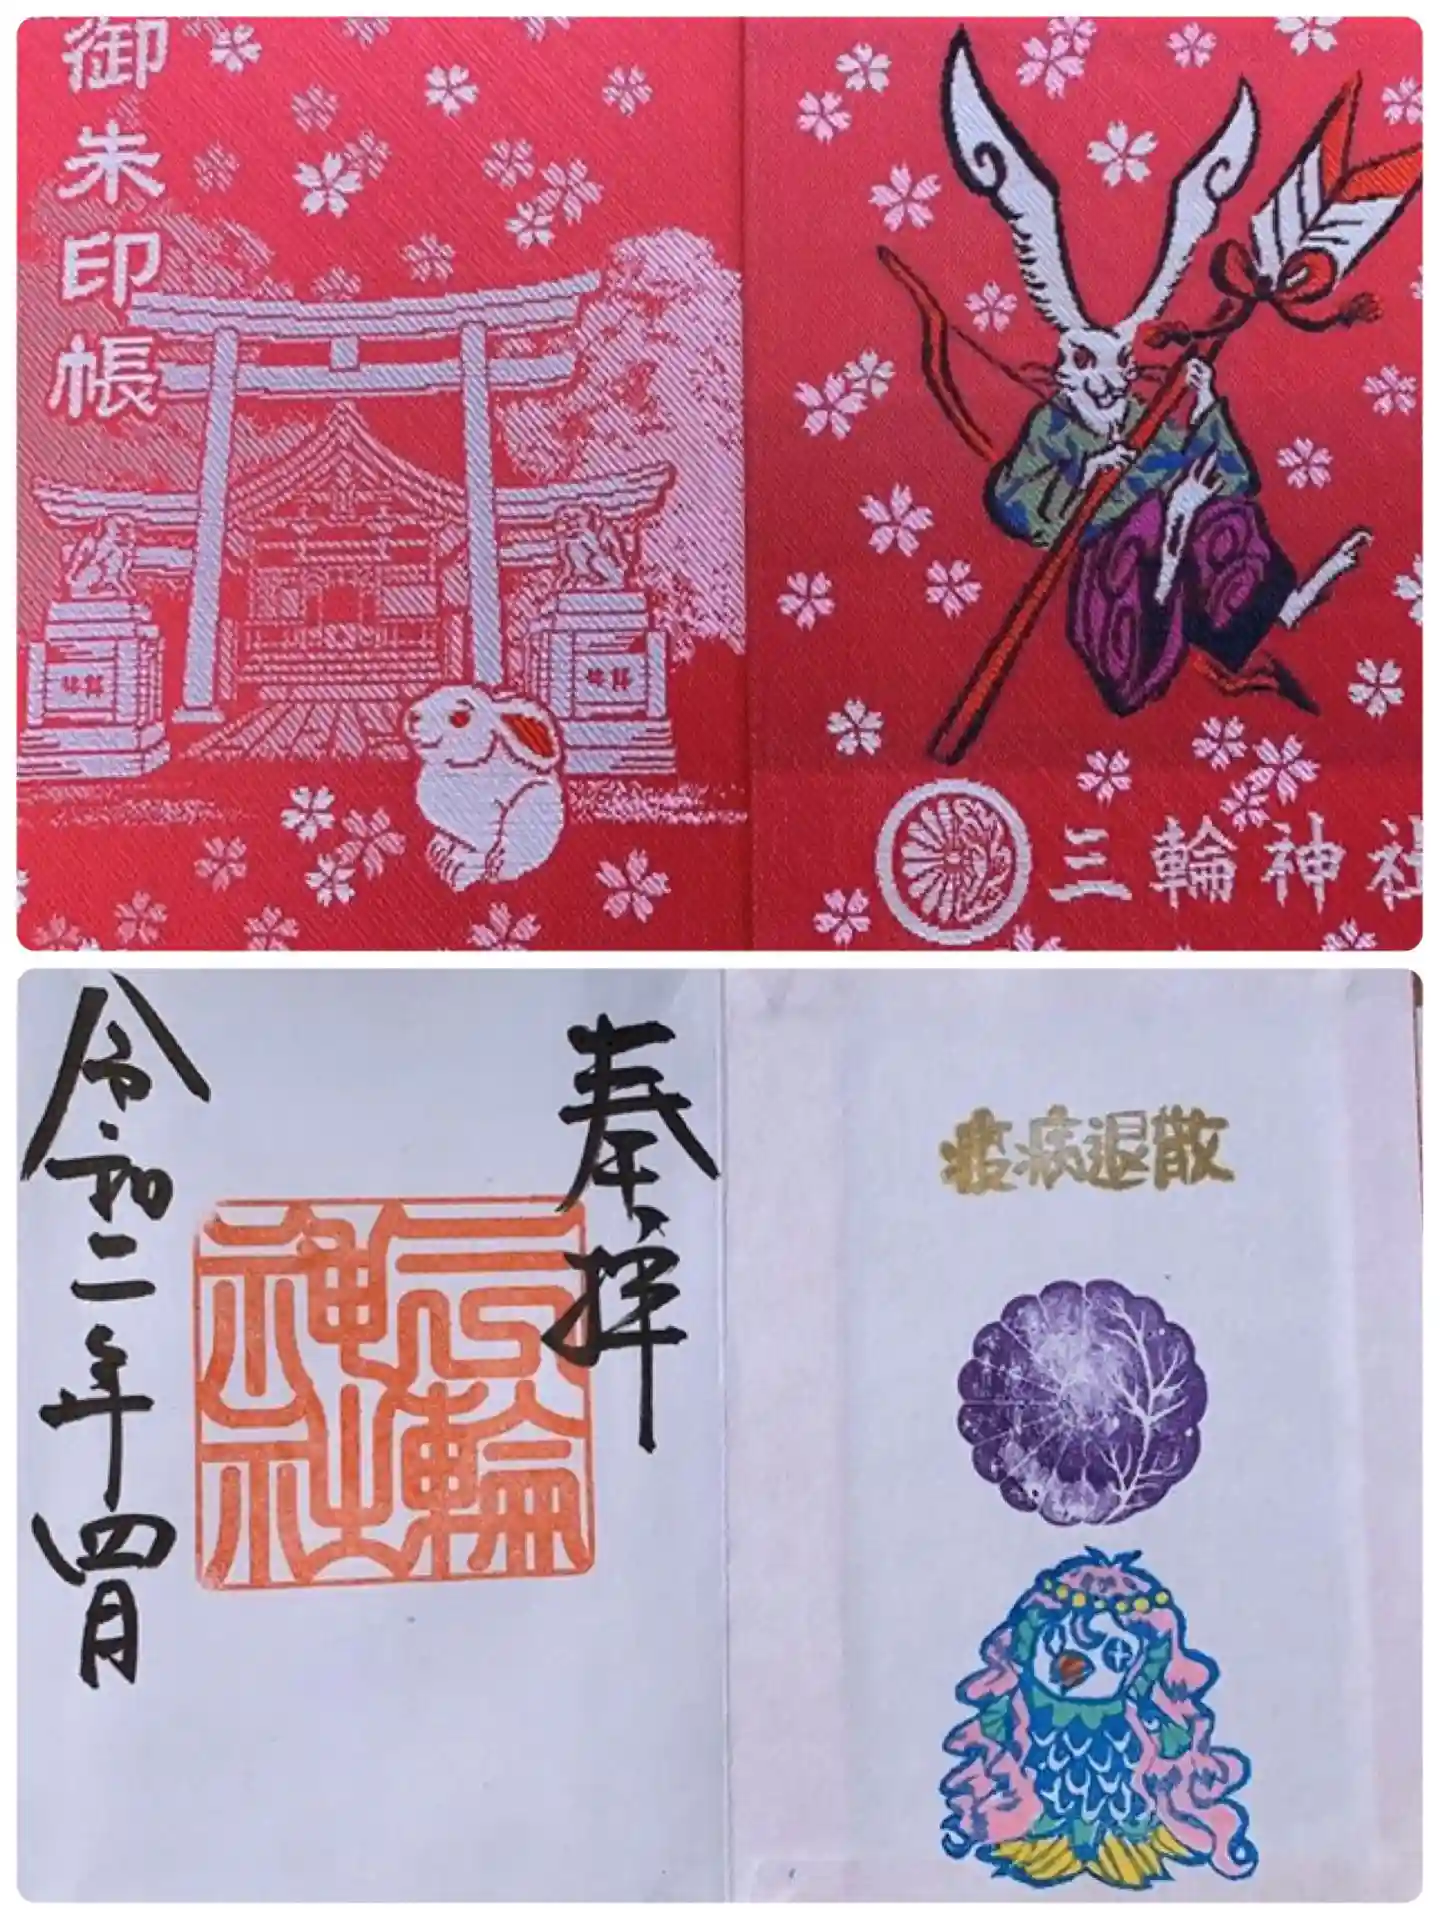 御朱印帳
三輪神社
奉拝
三輪神社
令和二年四月
疫病退散